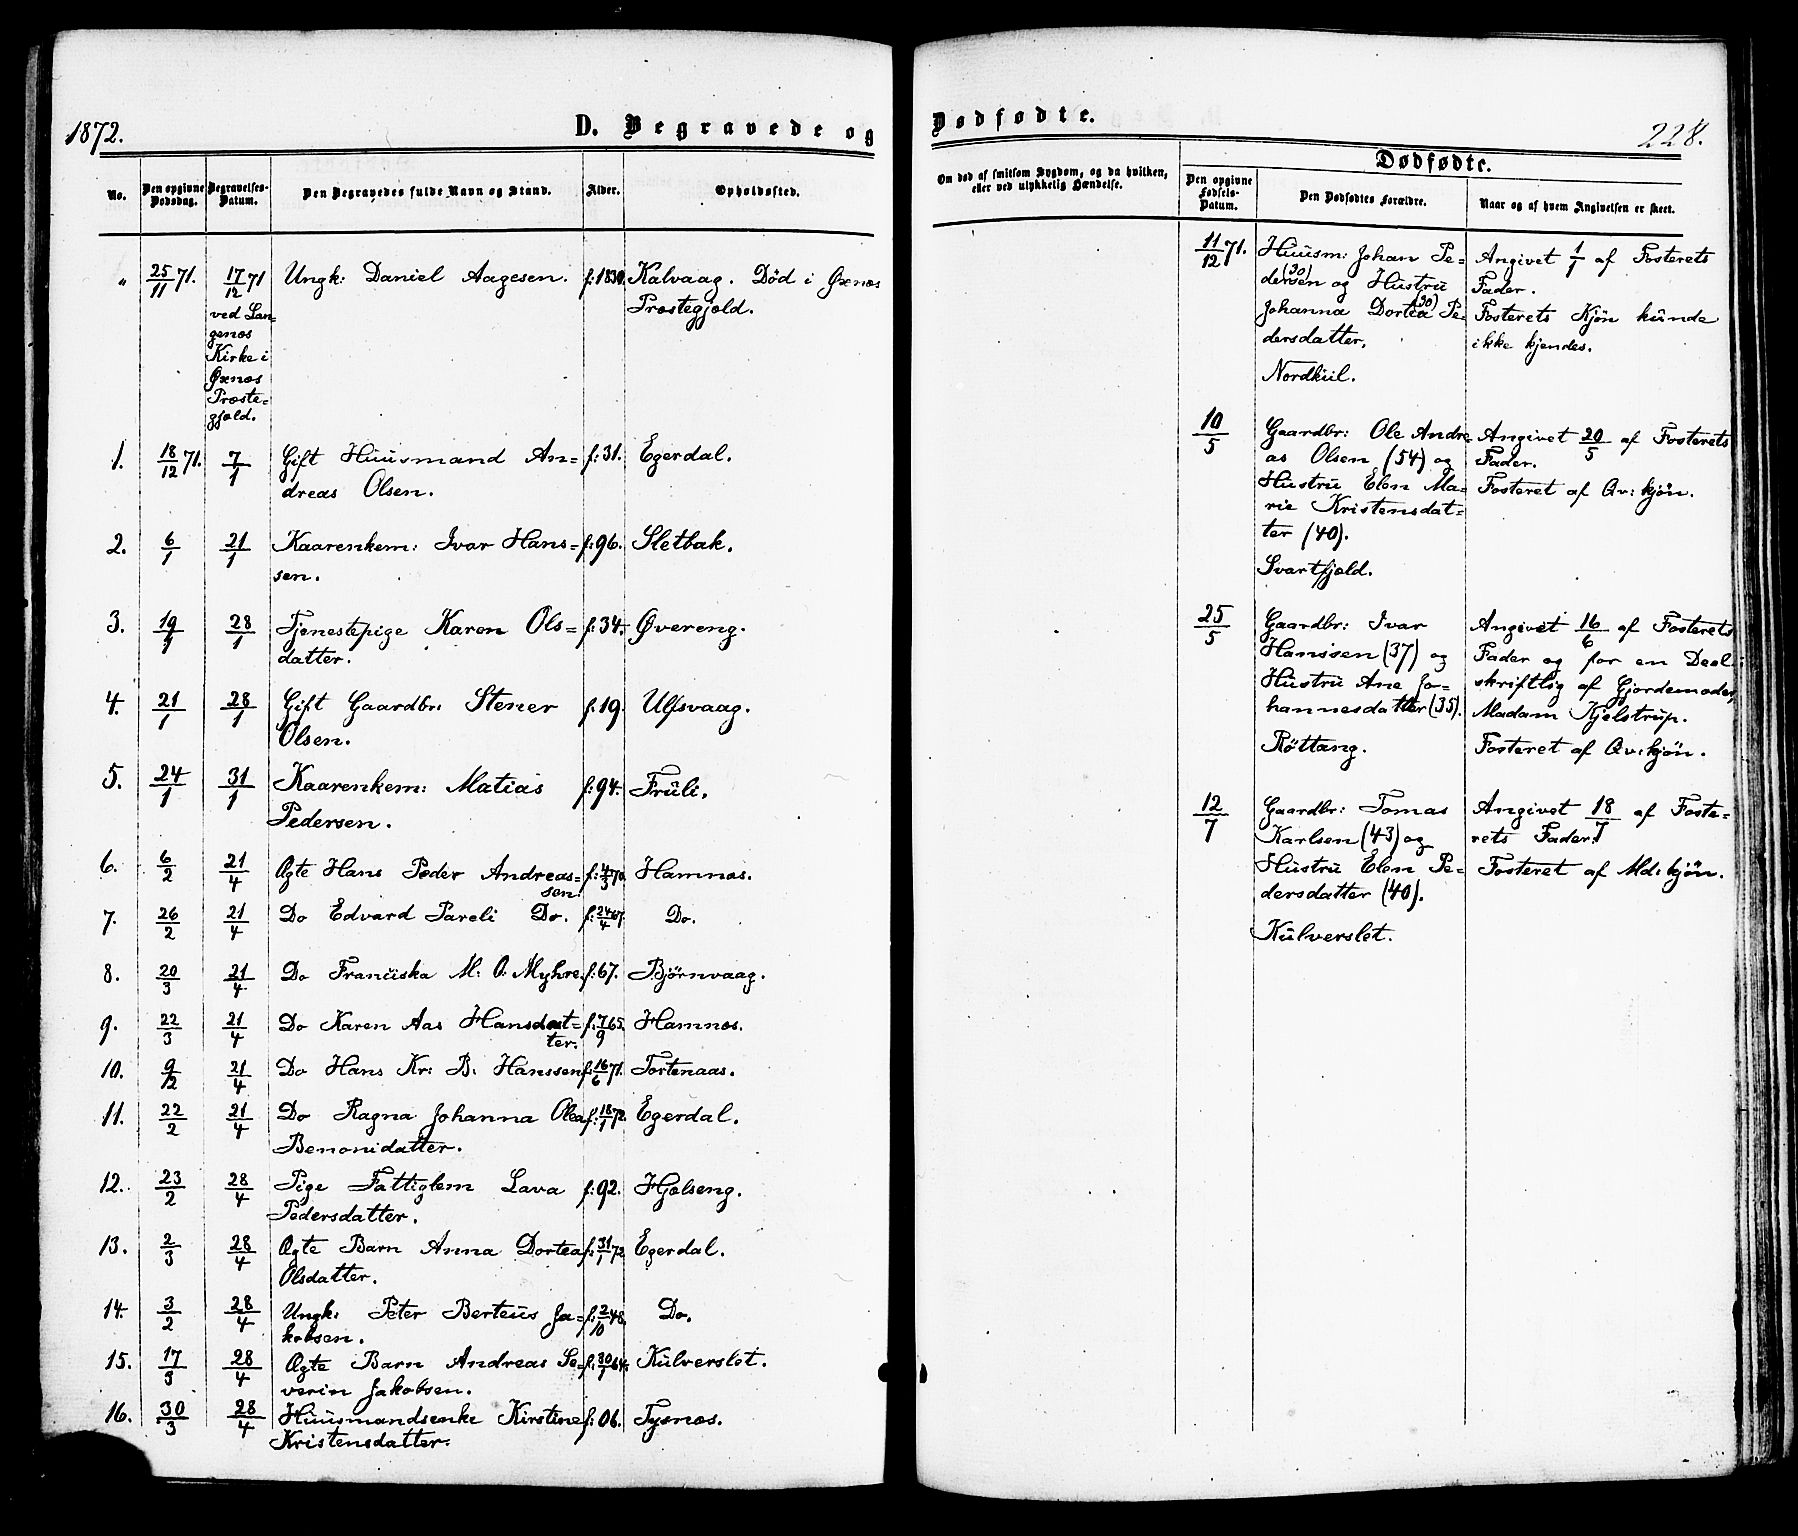 1872.
D. Begravede og
No.
Den opgivne Dødsdag.
Begravelses-Datum.
Den Begravedes fulde Navn og Stand.
Alder.
Opholdssted.
" 25/11 71. 17/12 71 Ungk: Daniel Aagesen. f: 1830. Kalvaag. Død i Øxnæs
ved Lan- Præstegjæld.
genæs
Kirke i
Øxnæs
Præste-
gjæld.
1. 18/12 71. 7/1 Gift Huusmand An- f: 31. Egerdal.
dreas Olsen.
2. 6/1 21/1 Kaarenkem: Ivar Hans- f: 96. Sletbak.
sen.
3. 19/1 28/1 Tjenestepige Karen Ols- f: 34. Øvereng.
datter.
4. 21/1 28/1 Gift Gaardbr: Stener f: 19. Ulfsvaag.
Olsen.
5. 24/1 31/1 Kaarenkem: Matias f: 94. Fruli.
Pedersen.
6. 6/2 21/4 Ægte Hans Peder Andreas- f: 4/3 70. Hamnæs.
sen.
7. 26/2 21/4 Do Edvard Pareli Do. f: 24/4 67. Do.
8. 20/3 21/4 Do Franciska M: O: Myhre. f: 67. Bjørnvaag.
9. 22/3 21/4 Do Karen Aas Hansdat- f: 7/9 65. Hamnæs.
ter.
10. 9/12 21/4 Do Hans Kr: B: Hanssen f: 16/6 71. Tortenaas.
11. 22/2 21/4 Do Ragna Johanna Olea f: 18/1 72. Egerdal.
Benonidatter.
12. 23/2 28/4 Pige Fattiglem Lava f: 92. Hjelseng.
Pedersdatter.
13. 2/3 28/4 Ægte Barn Anna Dortea f: 31/1 72. Egerdal.
Olsdatter.
14. 3/2 28/4 Ungk: Peter Berteus Ja- f: 2/10 48. Do.
kobsen.
15. 17/3 28/4 Ægte Barn Andreas Se- f: 30/7 64. Kulverslet.
verin Jakobsen.
16. 30/3 28/4 Huusmandsenke Kirstine f: 06. Tysnæs.
Kristensdatter.
Dødfødte.
228.
Om død af smitsom Sygdom, og da hvilken,
eller ved ulykkelig Hændelse.
Dødfødte.
Den opgivne Fødsels-Datum.
Den Dødfødtes Forældre.
Naar og af hvem Angivelsen er skeet.
11/12 71. Huusm: Johan Pe- Angivet 1/1 af Fosterets
dersen (30) og Hustru Fader.
Johanna Dortea (30) Pe- Fosterets Kjøn kunde
dersdatter. ikke kjendes.
Nordkiil.
10/5 Gaardbr: Ole Andre- Angivet 20/5 af Fosterets
as Olsen (54) og Fader.
Hustru Elen Ma- Fosteret af Qv: kjøn.
rie Kristensdat-
ter (40).
Svartfjeld.
25/5 Gaardbr: Ivar Angivet 16/6 af Fosterets
Hanssen (37) og Fader og for en Deel
Hustru Ane Jo- skriftlig af Gjordemoder,
hannesdatter (35). Madam Kjelstrup.
Røttang. Fosteret af Qv: kjøn.
12/7 Gaardbr: Tomas Angivet 18/7 af Foste-
Karlsen (43) og rets Fader.
Hustru Elen Pe- Fosteret af Md: kjøn.
dersdatter (40).
Kulverslet.